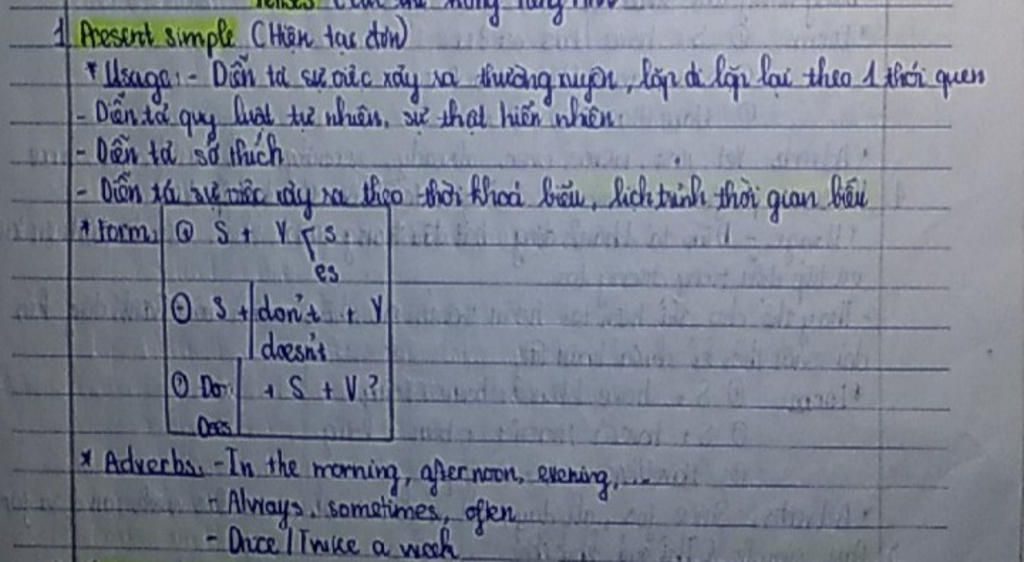 1 Present simple (Hiện tại đơn)
* Usage: - Diễn tả sự việc xảy ra thường xuyên, lặp đi lặp lại theo 1 thói quen
- Diễn tả quy luật tự nhiên, sự thật hiển nhiên
- Diễn tả sở thích
- Diễn tả sự việc xảy ra theo thời khoá biểu, lịch trình thời gian biểu
* Form: + S + V s
es
- S + don't + V
doesn't
? Do + S + V?
Does
* Adverbs: - In the morning, afternoon, evening,...
- Always, sometimes, often
- Once / Twice a week